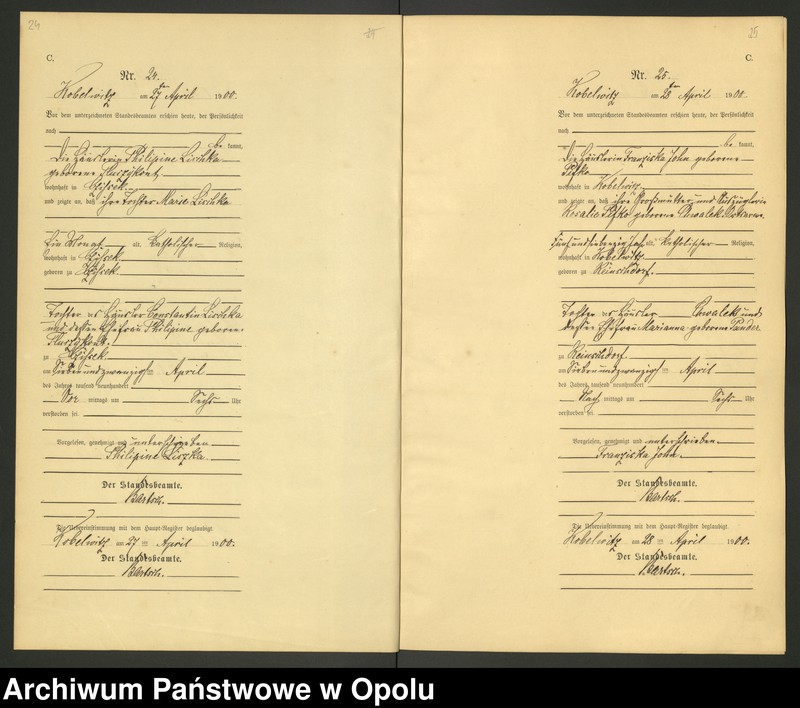 24
C.
Nr. 24.
Kobelwitz am 27ten April 1900.
Vor dem unterzeichneten Standesbeamten erschien heute, der Persönlichkeit
nach
be kannt,
die Häuslerin Philipine Lischka
geborene
wohnhaft in
und zeigte an, daß ihre Tochter Marie Lischka
Ein Monat alt, katholischer Religion,
wohnhaft in
geboren zu
Tochter des Häusler Constantin Lischka
und dessen Ehefrau Philipine geborene
zu
am Siebenundzwanzigsten April
des Jahres tausend neunhundert
Vor mittags um Sechs Uhr
verstorben sei.
Vorgelesen, genehmigt und unterschrieben
Philipine Liszka.
Der Standesbeamte.
Bartsch.
Die Uebereinstimmung mit dem Haupt-Register beglaubigt
Kobelwitz am 27ten April 1900.
Der Standesbeamte.
Bartsch.
25
C.
Nr. 25.
Kobelwitz am 28ten April 1900
Vor dem unterzeichneten Standesbeamten erschien heute, der Persönlichkeit
nach
be kannt,
die Häuslerin Franziska John geborene
wohnhaft in Kobelwitz
und zeigte an, daß ihre Großmutter und Auszüglerin
Rosalie geborene Chwalek, Witwe
Fünfundsiebenzig Jahr alt, katholischer Religion,
wohnhaft in Kobelwitz
geboren zu Reinschdorf.
Tochter des Häusler Chwalek und
dessen Ehefrau Marianna geborene
zu Reinschdorf.
am Siebenundzwanzigsten April
des Jahres tausend neunhundert
Nach mittags um Sechs Uhr
verstorben sei.
Vorgelesen, genehmigt und unterschrieben
Franziska John.
Der Standesbeamte.
Bartsch.
Die Uebereinstimmung mit dem Haupt-Register beglaubigt
Kobelwitz am 28ten April 1900.
Der Standesbeamte.
Bartsch.
Archiwum Państwowe w Opolu